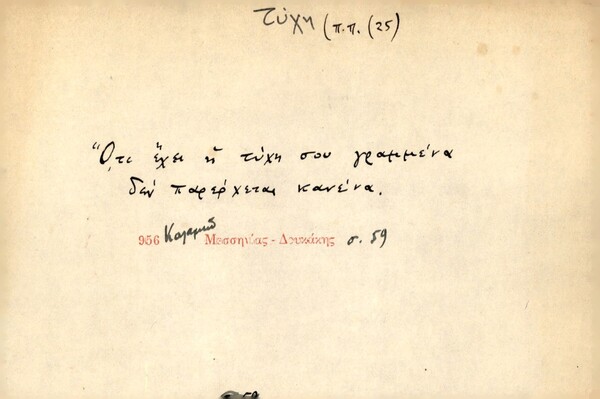 τύχη (π.π. (25)
Ὅ,τι ἔχει ἡ τύχη σου γραμμένα
δὲν παρέρχεται κανένα.
956 Καλαμῶν Μεσσηνίας - Δουκάκης σ. 59
59